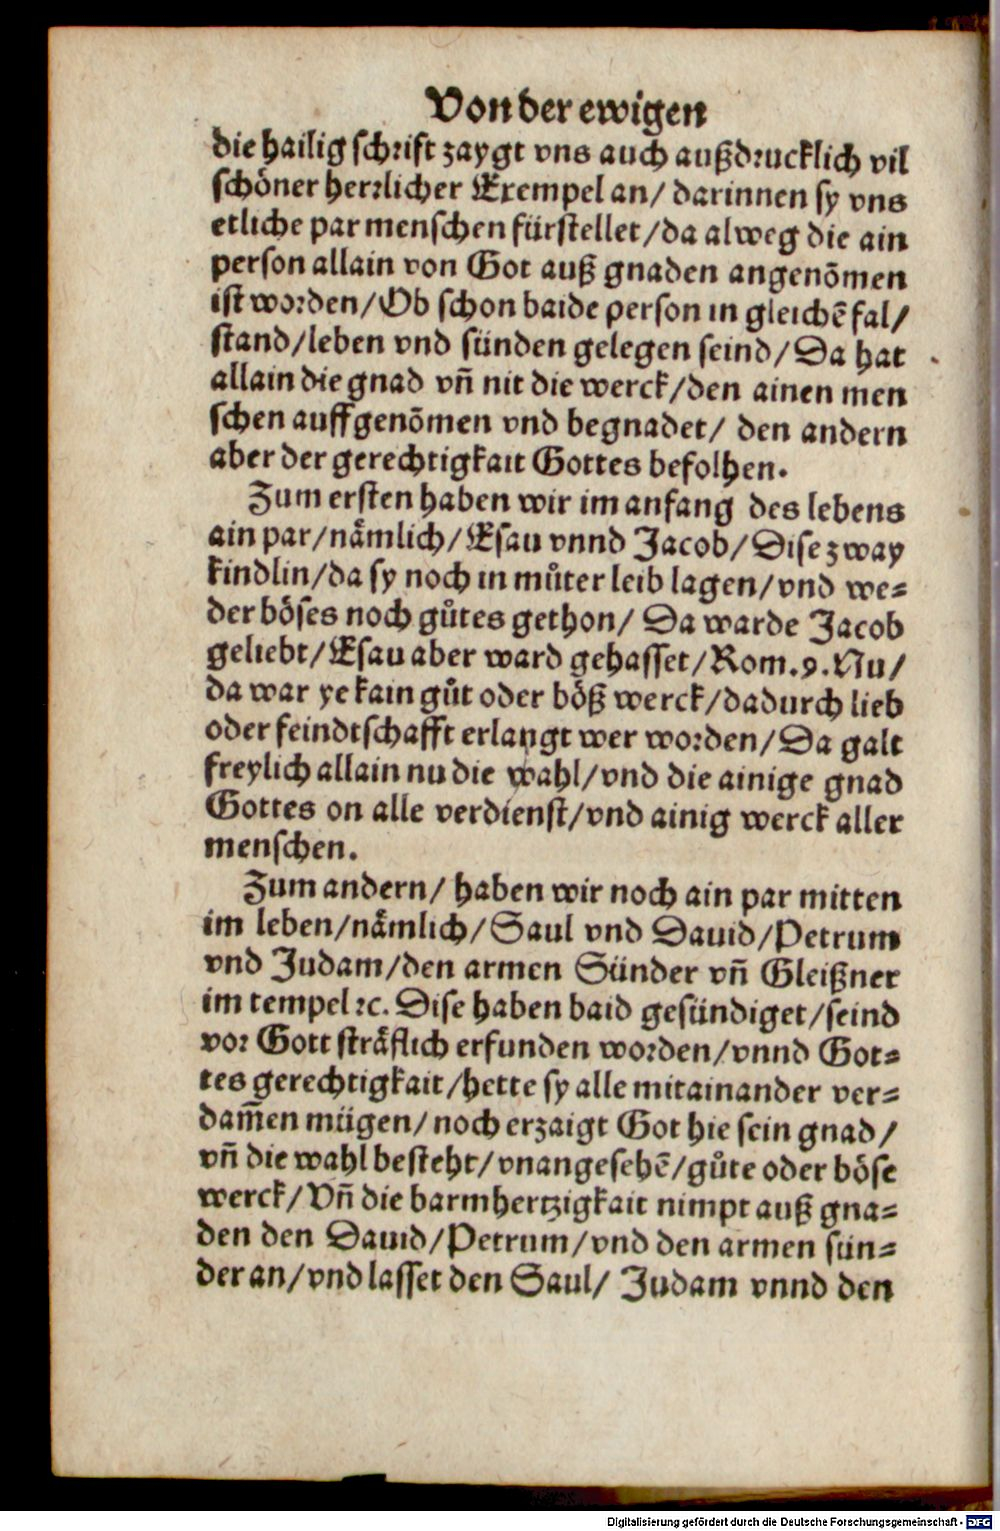 Von der ewigen
die hailig schrift zaygt vns auch außdrucklich vil
schöner herrlicher Exempel an/ darinnen sy vns
etliche par menschen fürstellet/da alweg die ain
person allain von Got auß gnaden angenõmen
ist worden/Ob schon baide person in gleichẽ fal/
stand/leben vnd sünden gelegen seind/Da hat
allain die gnad vñ nit die werck/den ainen men
schen auffgenõmen vnd begnadet/ den andern
aber der gerechtigkait Gottes befolhen.
Zum ersten haben wir im anfang des lebens
ain par/nämlich/Esau vnnd Jacob/Dise zway
kindlin/da sy noch in můter leib lagen/vnd we⸗
der böses noch gůtes gethon/ Da warde Jacob
geliebt/Esau aber ward gehasset/Rom.9.Nu/
da war ye kain gůt oder böß werck/dadurch lieb
oder feindtschafft erlangt wer worden/Da galt
freylich allain nu die wahl/vnd die ainige gnad
Gottes on alle verdienst/vnd ainig werck aller
menschen.
Zum andern/ haben wir noch ain par mitten
im leben/nämlich/Saul vnd Dauid/Petrum
vnd Judam/den armen Sünder vñ Gleißner
im tempel ꝛc. Dise haben baid gesündiget/seind
vor Gott sträflich erfunden worden/vnnd Got⸗
tes gerechtigkait/hette sy alle mitainander ver⸗
dam̃en mügen/noch erzaigt Got hie sein gnad/
vñ die wahl besteht/vnangesehẽ/gůte oder böse
werck/Vñ die barmhertzigkait nimpt auß gna⸗
den den Dauid/Petrum/vnd den armen sün⸗
der an/vnd lasset den Saul/ Judam vnnd den
Digitalisierung gefördert durch die Deutsche Forschungsgemeinschaft - DFG